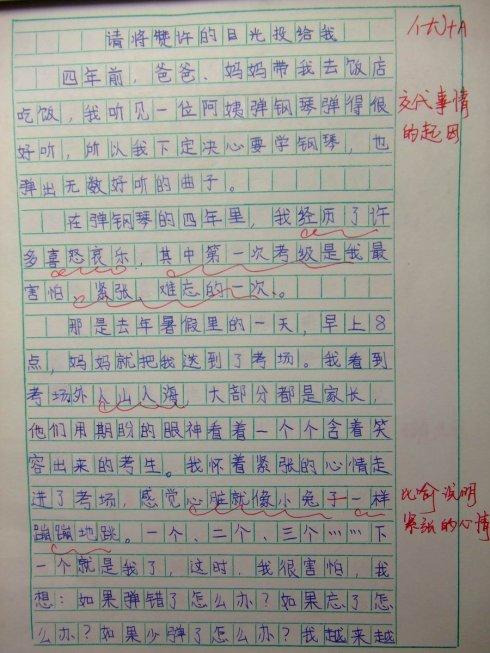 请将赞许的目光投给我
优+A
四年前，爸爸、妈妈带我去饭店
吃饭，我听见一位阿姨弹钢琴弹得很
好听，所以我下定决心要学钢琴，也
弹出无数好听的曲子。
交代事情
的起因
在弹钢琴的四年里，我经历了许
多喜怒哀乐，其中第一次考级是我最
害怕、紧张、难忘的一次。
那是去年暑假里的一天，早上8
点，妈妈就把我送到了考场。我看到
考场外人山人海，大部分都是家长，
他们用期盼的眼神看着一个个含着笑
容出来的考生。我怀着紧张的心情走
进了考场，感觉心脏就像小兔子一样
蹦蹦地跳。一个、二个、三个……下
比喻说明
紧张的心情
一个就是我了，这时，我很害怕，我
想：如果弹错了怎么办？如果忘了怎
么办？如果少弹了怎么办？我越来越